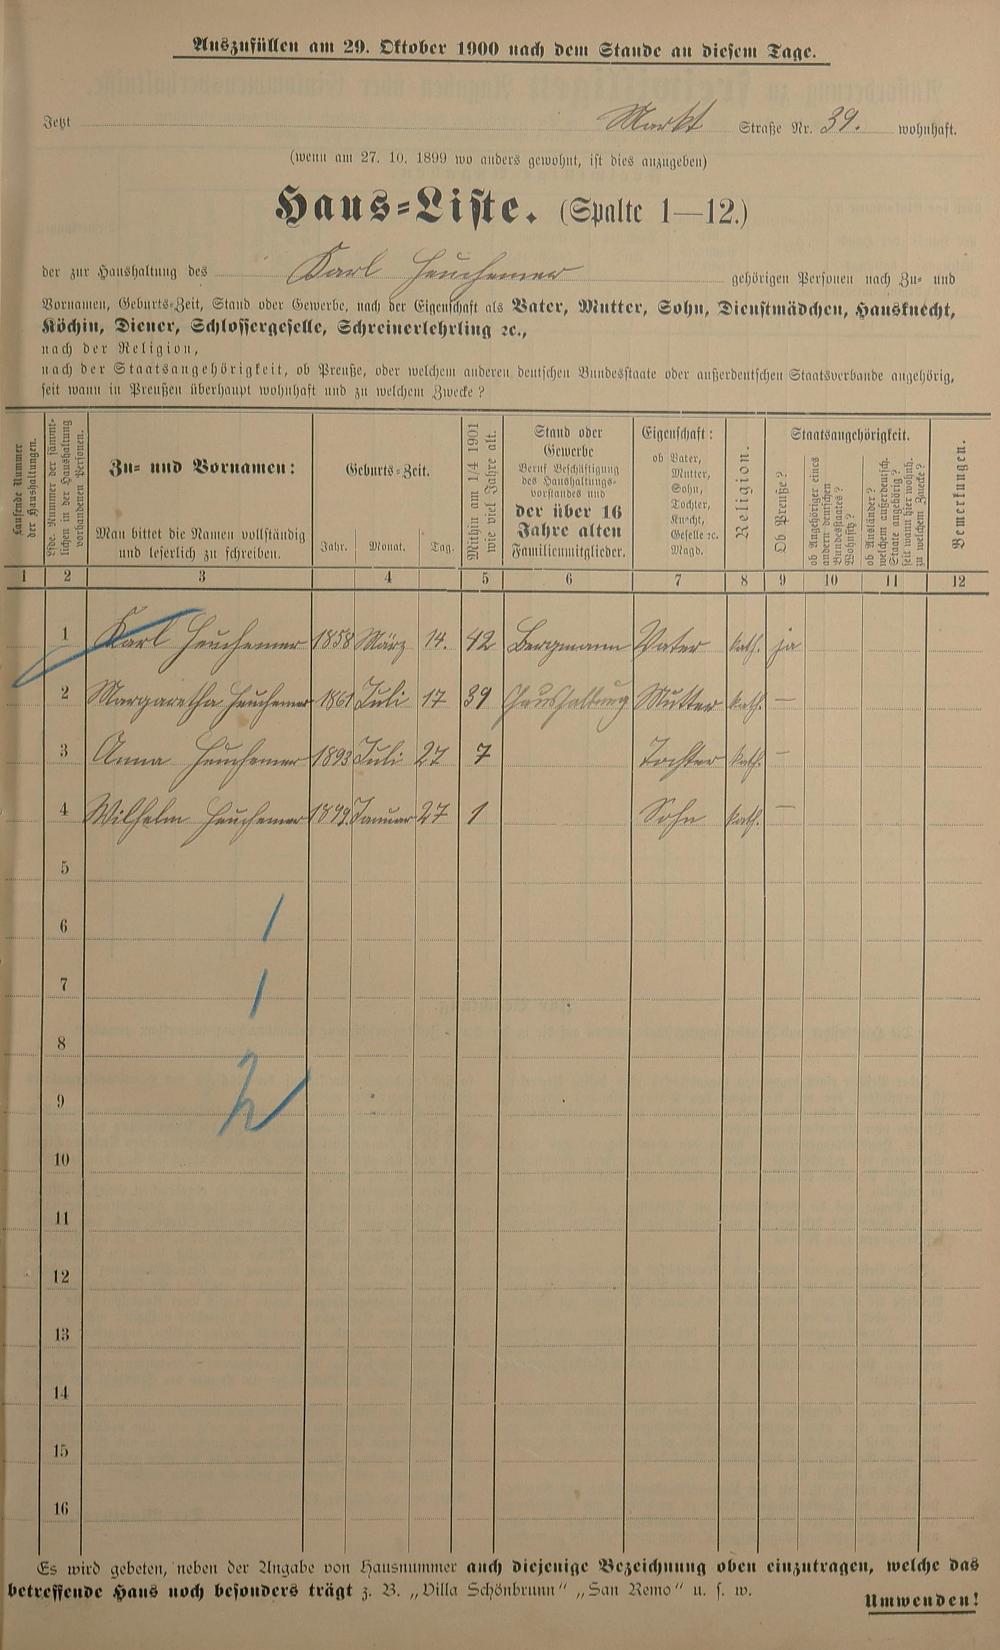 Auszufüllen am 29. Oktober 1900 nach dem Stande an diesem Tage.
Jetzt Markt Straße Nr. 39. wohnhaft.
(wenn am 27. 10. 1899 wo anders gewohnt, ist dies anzugeben)
Haus-Liste. (Spalte 1—12.)
der zur Haushaltung des Karl Heuchemer gehörigen Personen nach Zu- und
Vornamen, Geburts-Zeit, Stand oder Gewerbe, nach der Eigenschaft als Vater, Mutter, Sohn, Dienstmädchen, Hausknecht,
Köchin, Diener, Schlossergeselle, Schreinerlehrling ꝛc.,
nach der Religion,
nach der Staatsangehörigkeit, ob Preuße, oder welchem anderen deutschen Bundesstaate oder außerdeutschen Staatsverbande angehörig,
seit wann in Preußen überhaupt wohnhaft und zu welchem Zwecke?
Laufende Nummer
der Haushaltungen.
Lfde. Nummer der sämmt-
lichen in der Haushaltung
vorhandenen Personen.
Zu- und Vornamen:
Man bittet die Namen vollständig
und leserlich zu schreiben.
Geburts-Zeit.
Jahr. Monat. Tag.
Mithin am 1/4 1901
wie viel Jahre alt.
Stand oder
Gewerbe
Beruf Beschäftigung
des Haushaltungs-
vorstandes und
der über 16
Jahre alten
Familienmitglieder.
Eigenschaft:
ob Vater,
Mutter,
Sohn,
Tochter,
Knecht,
Geselle ꝛc.
Magd.
Religion.
Staatsangehörigkeit.
Ob Preuße?
ob Angehöriger eines
andern deutschen
Bundesstaates?
Wohnsitz?
ob Ausländer?
welchem außerdeutsch.
Staate angehörig?
seit wann hier wohnh.
zu welchem Zwecke?
Bemerkungen.
1 2 3 4 5 6 7 8 9 10 11 12
1 Karl Heuchemer 1858 März 14. 42 Bergmann Vater kath. ja
2 Margaretha Heuchemer 1861 Juli 17 39 Haushaltung Mutter kath. —
3 Anna Heuchemer 1893 Juli 27 7 Tochter kath. —
4 Wilhelm Heuchemer 1899. Januar 27 1 Sohn kath. —
5
6 1
7 1
8
9 2
10
11
12
13
14
15
16
Es wird gebeten, neben der Angabe von Hausnummer auch diejenige Bezeichnung oben einzutragen, welche das
betreffende Haus noch besonders trägt z. B. „Villa Schönbrunn" „San Remo" u. s. w.
Umwenden!